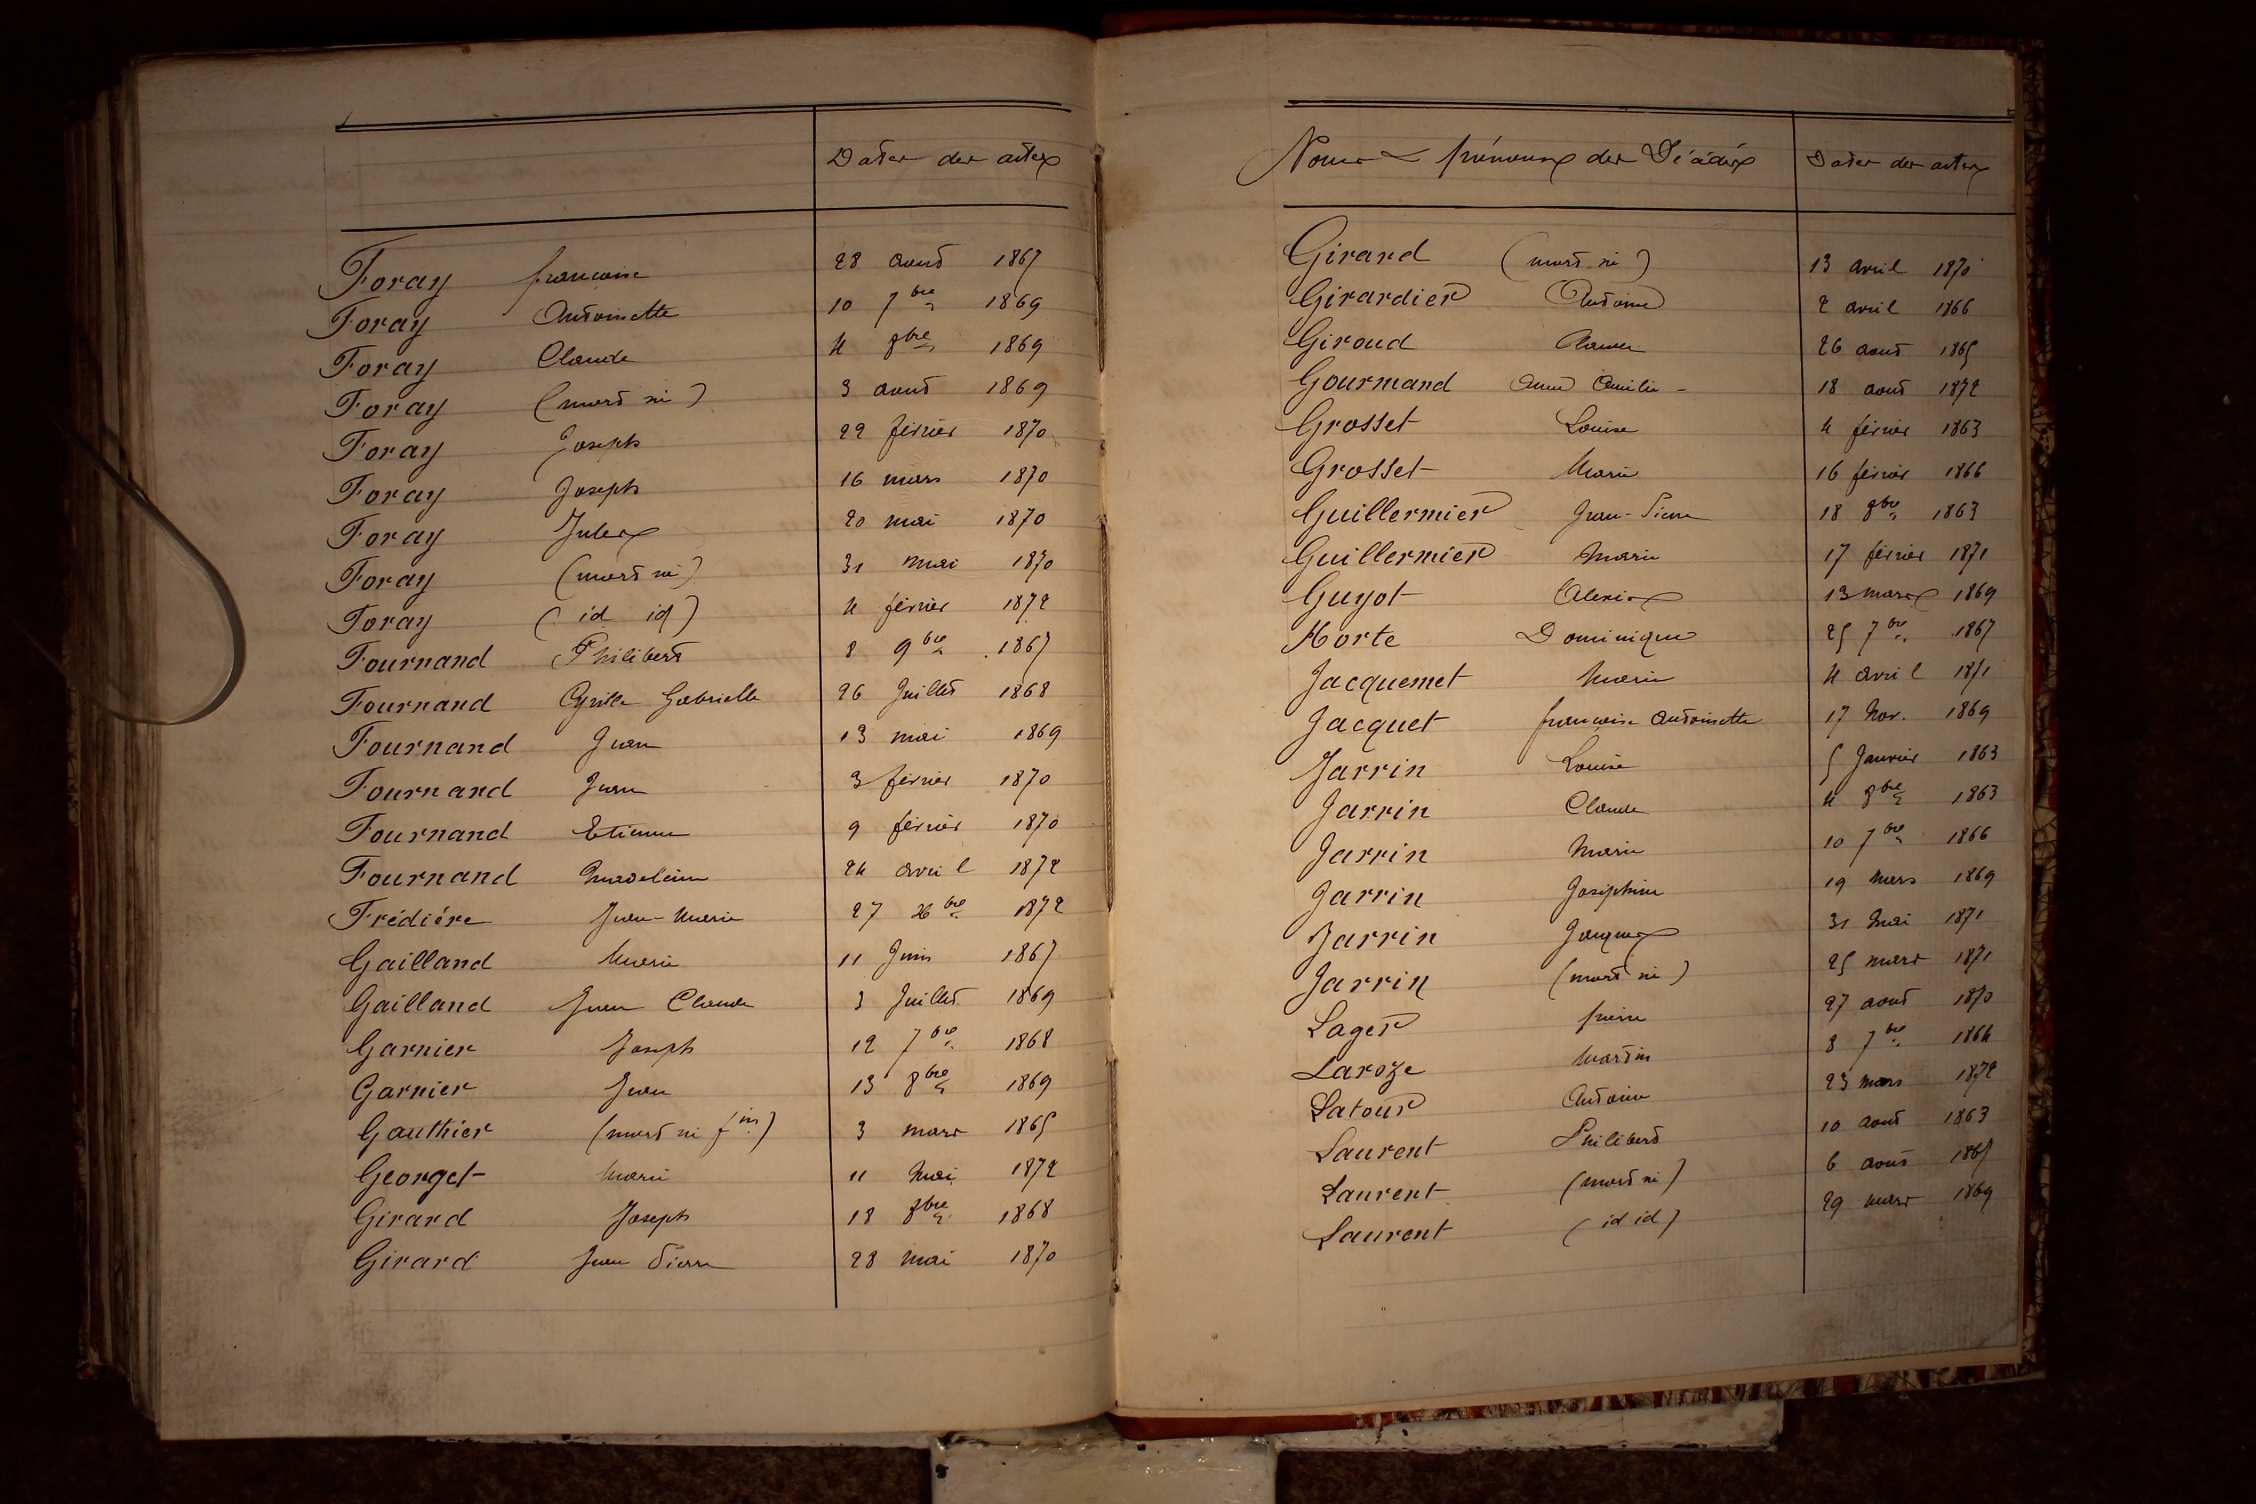 Dates des actes
Foray françoise 28 août 1867
Foray Antoinette 10 7bre 1869
Foray Claude 4 8bre 1869
Foray (mort né) 3 août 1869
Foray Joseph 22 février 1870
Foray Joseph 16 mars 1870
Foray Jules 20 mai 1870
Foray (mort né) 31 mai 1870
Foray (id id) 4 février 1872
Fournand Philibert 8 9bre 1867
Fournand Gabrielle 26 Juillet 1868
Fournand Jean 13 mai 1869
Fournand Jean 3 février 1870
Fournand Etienne 9 février 1870
Fournand Madeleine 24 avril 1872
Frédiére Jean-Marie 27 bre 1872
Gailland Marie 11 Juin 1867
Gailland Jean Claude 3 Juillet 1869
Garnier Joseph 12 7bre 1868
Garnier Jean 13 8bre 1869
Gauthier (mort né fin) 3 mars 1865
Georget Marie 11 Mai 1872
Girard Joseph 18 8bre 1868
Girard Jean Pierre 28 mai 1870
Noms & prénoms des Décédés Dates des actes
Girard (mort né) 13 avril 1870
Girardier Antoine 2 avril 1866
Giroud 26 août 1865
Gourmand Anne 18 août 1872
Grosset Louise 4 février 1863
Grosset Marie 16 février 1866
Guillermier Jean-Pierre 18 8bre 1863
Guillermier Marie 17 février 1871
Guyot Alexis 13 mars 1869
Horte Dominique 25 7bre 1867
Jacquemet Marie 4 avril 1871
Jacquet françoise Antoinette 17 Nov. 1869
Jarrin Louise 5 Janvier 1863
Jarrin Claude 4 8bre 1863
Jarrin Marie 10 7bre 1866
Jarrin Joséphine 19 Mars 1869
Jarrin Jacques 31 Mai 1871
Jarrin (mort né) 25 mars 1871
Lager pierre 27 août 1870
Laroze Martin 8 7bre 1864
Latour Antoine 23 mars 1872
Laurent Philibert 10 août 1863
Laurent (mort né) 6 août 1867
Laurent (id id) 29 mars 1869